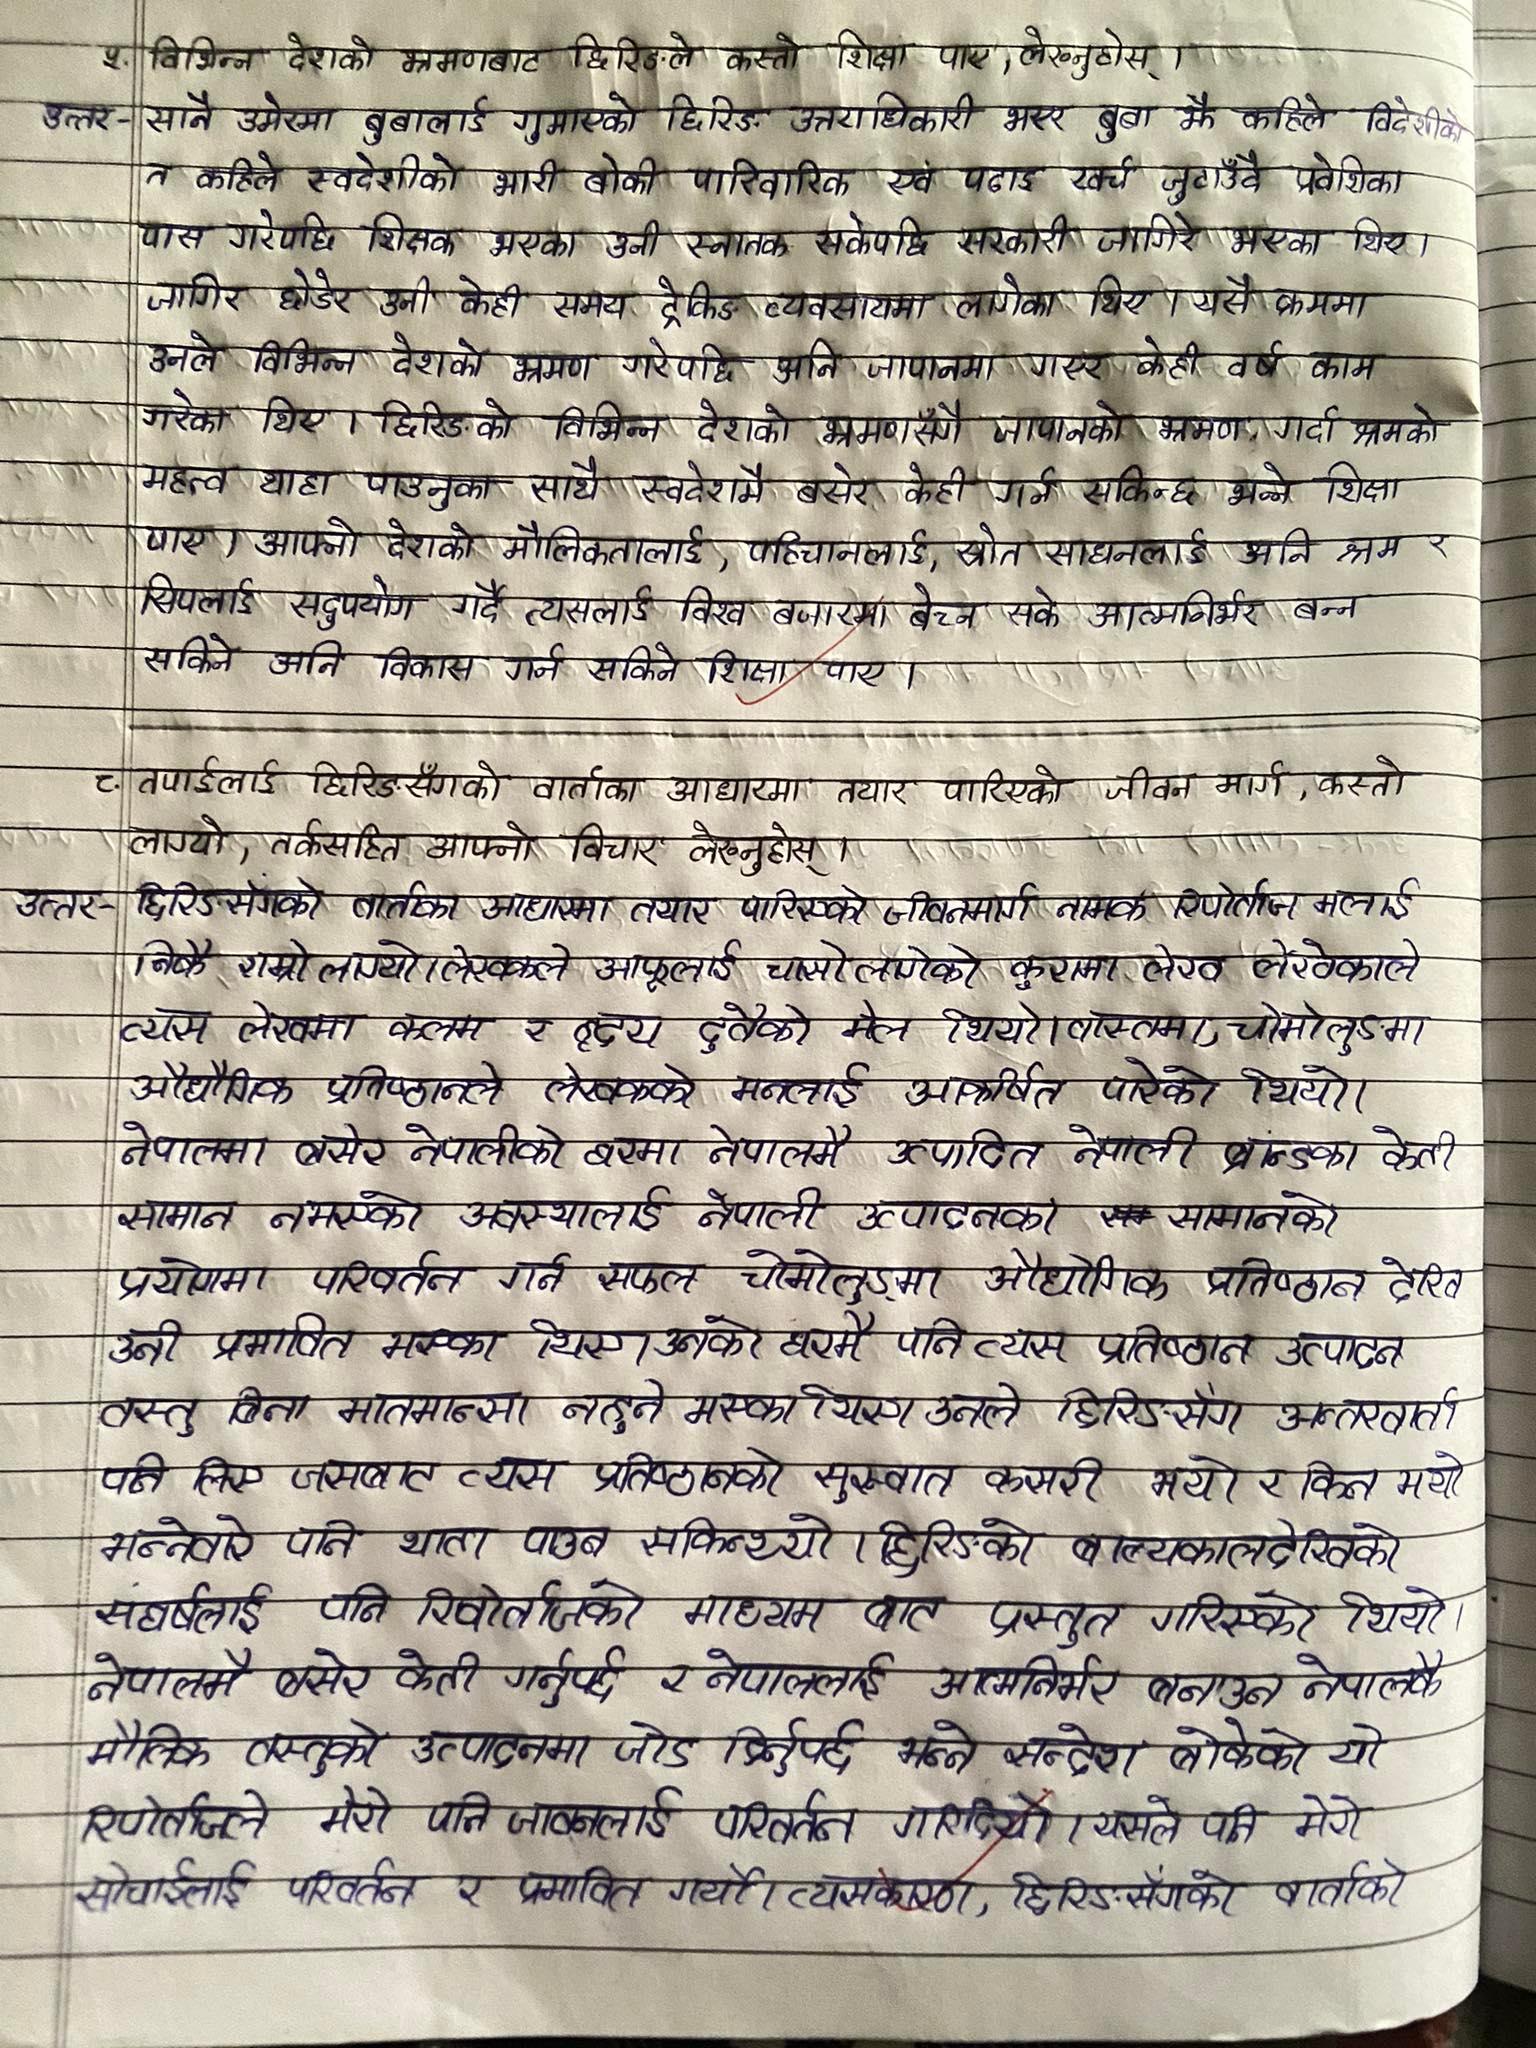 ५. विभिन्न देशको भ्रमणबाट छिरिङले कस्तो शिक्षा पाए, लेख्नुहोस् ।
उत्तर- सानै उमेरमा बुबालाई गुमाएको छिरिङ उत्तराधिकारी भएर बुबा झैँ कहिले विदेशीको
त कहिले स्वदेशीको भारी बोकी पारिवारिक एवं पढाइ खर्च जुटाउँदै प्रवेशिका
पास गरेपछि शिक्षक भएका उनी स्नातक सकेपछि सरकारी जागिरे भएका थिए।
जागिर छोडेर उनी केही समय ट्रेकिङ व्यवसायमा लागेका थिए । यसै क्रममा
उनले विभिन्न देशको भ्रमण गरेपछि अनि जापानमा गएर केही वर्ष काम
गरेका थिए । छिरिङको विभिन्न देशको भ्रमणसँगै जापानको भ्रमण गर्दा श्रमको
महत्त्व थाहा पाउनुका साथै स्वदेशमै बसेर केही गर्न सकिन्छ भन्ने शिक्षा
पाए। आफ्नो देशको मौलिकतालाई, पहिचानलाई, स्रोत साधनलाई अनि श्रम र
सिपलाई सदुपयोग गर्दै त्यसलाई विश्व बजारमा बेच्न सके आत्मनिर्भर बन्न
सकिने अनि विकास गर्न सकिने शिक्षा पाए ।
८. तपाईलाई छिरिङसँगको वार्ताका आधारमा तयार पारिएको जीवन मार्ग, कस्तो
लाग्यो, तर्कसहित आफ्नो विचार लेख्नुहोस् ।
उत्तर- छिरिङसँगको वार्ताका आधारमा तयार पारिएको जीवनमार्ग नामक रिपोर्ताज मलाई
निकै राम्रो लाग्यो। लेखकले आफूलाई चासो लागेको कुरामा लेख लेखेकाले
त्यस लेखमा कलम र हृदय दुवैको मेल थियो। वास्तमा, चोमोलुङमा
औद्यौगिक प्रतिष्ठानले लेखकको मनलाई आकर्षित पारेको थियो।
नेपालमा बसेर नेपालीको घरमा नेपालमै उत्पादित नेपाली ब्रान्डका केही
सामान नभएको अवस्थालाई नेपाली उत्पादनका सामानको
प्रयोगमा परिवर्तन गर्न सफल चोमोलुङ्मा औद्योगिक प्रतिष्ठान देखि
उनी प्रभावित भएका थिए। उनको घरमै पनि त्यस प्रतिष्ठान उत्पादन
वस्तु बिना भातभान्सा नहुने भएका थिए। उनले छिरिङसँग अन्तरवार्ता
पनि लिए जसबाट त्यस प्रतिष्ठानको सुरुवात कसरी भयो र किन भयो
भन्नेबारे पनि थाहा पाउन सकिन्थ्यो । छिरिङको बाल्यकालदेखिको
संघर्षलाई पनि रिपोर्ताजको माध्यम बाट प्रस्तुत गरिएको थियो।
नेपालमै बसेर केही गर्नुपर्छ र नेपाललाई आत्मनिर्भर बनाउन नेपालकै
मौलिक वस्तुको उत्पादनमा जोड दिनुपर्छ भन्ने सन्देश बोकेको यो
रिपोर्ताजले मेरो पनि जीवनलाई परिवर्तन गरिदियो । यसले पनि मेरो
सोचाईलाई परिवर्तन र प्रभावित गर्यो। त्यसकारण, छिरिङसँगको वार्ताको